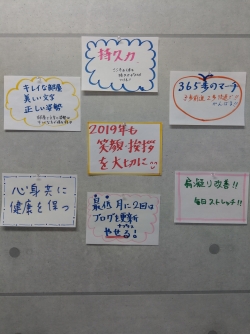 持久力
キレイな部屋
美しい文字
正しい姿勢
365歩のマーチ
2019年も
笑顔・挨拶
を大切に
心身共に
健康を保つ
最低月に2回は
ブログを更新
やせる!
肩凝り改善!!
毎日ストレッチ!!